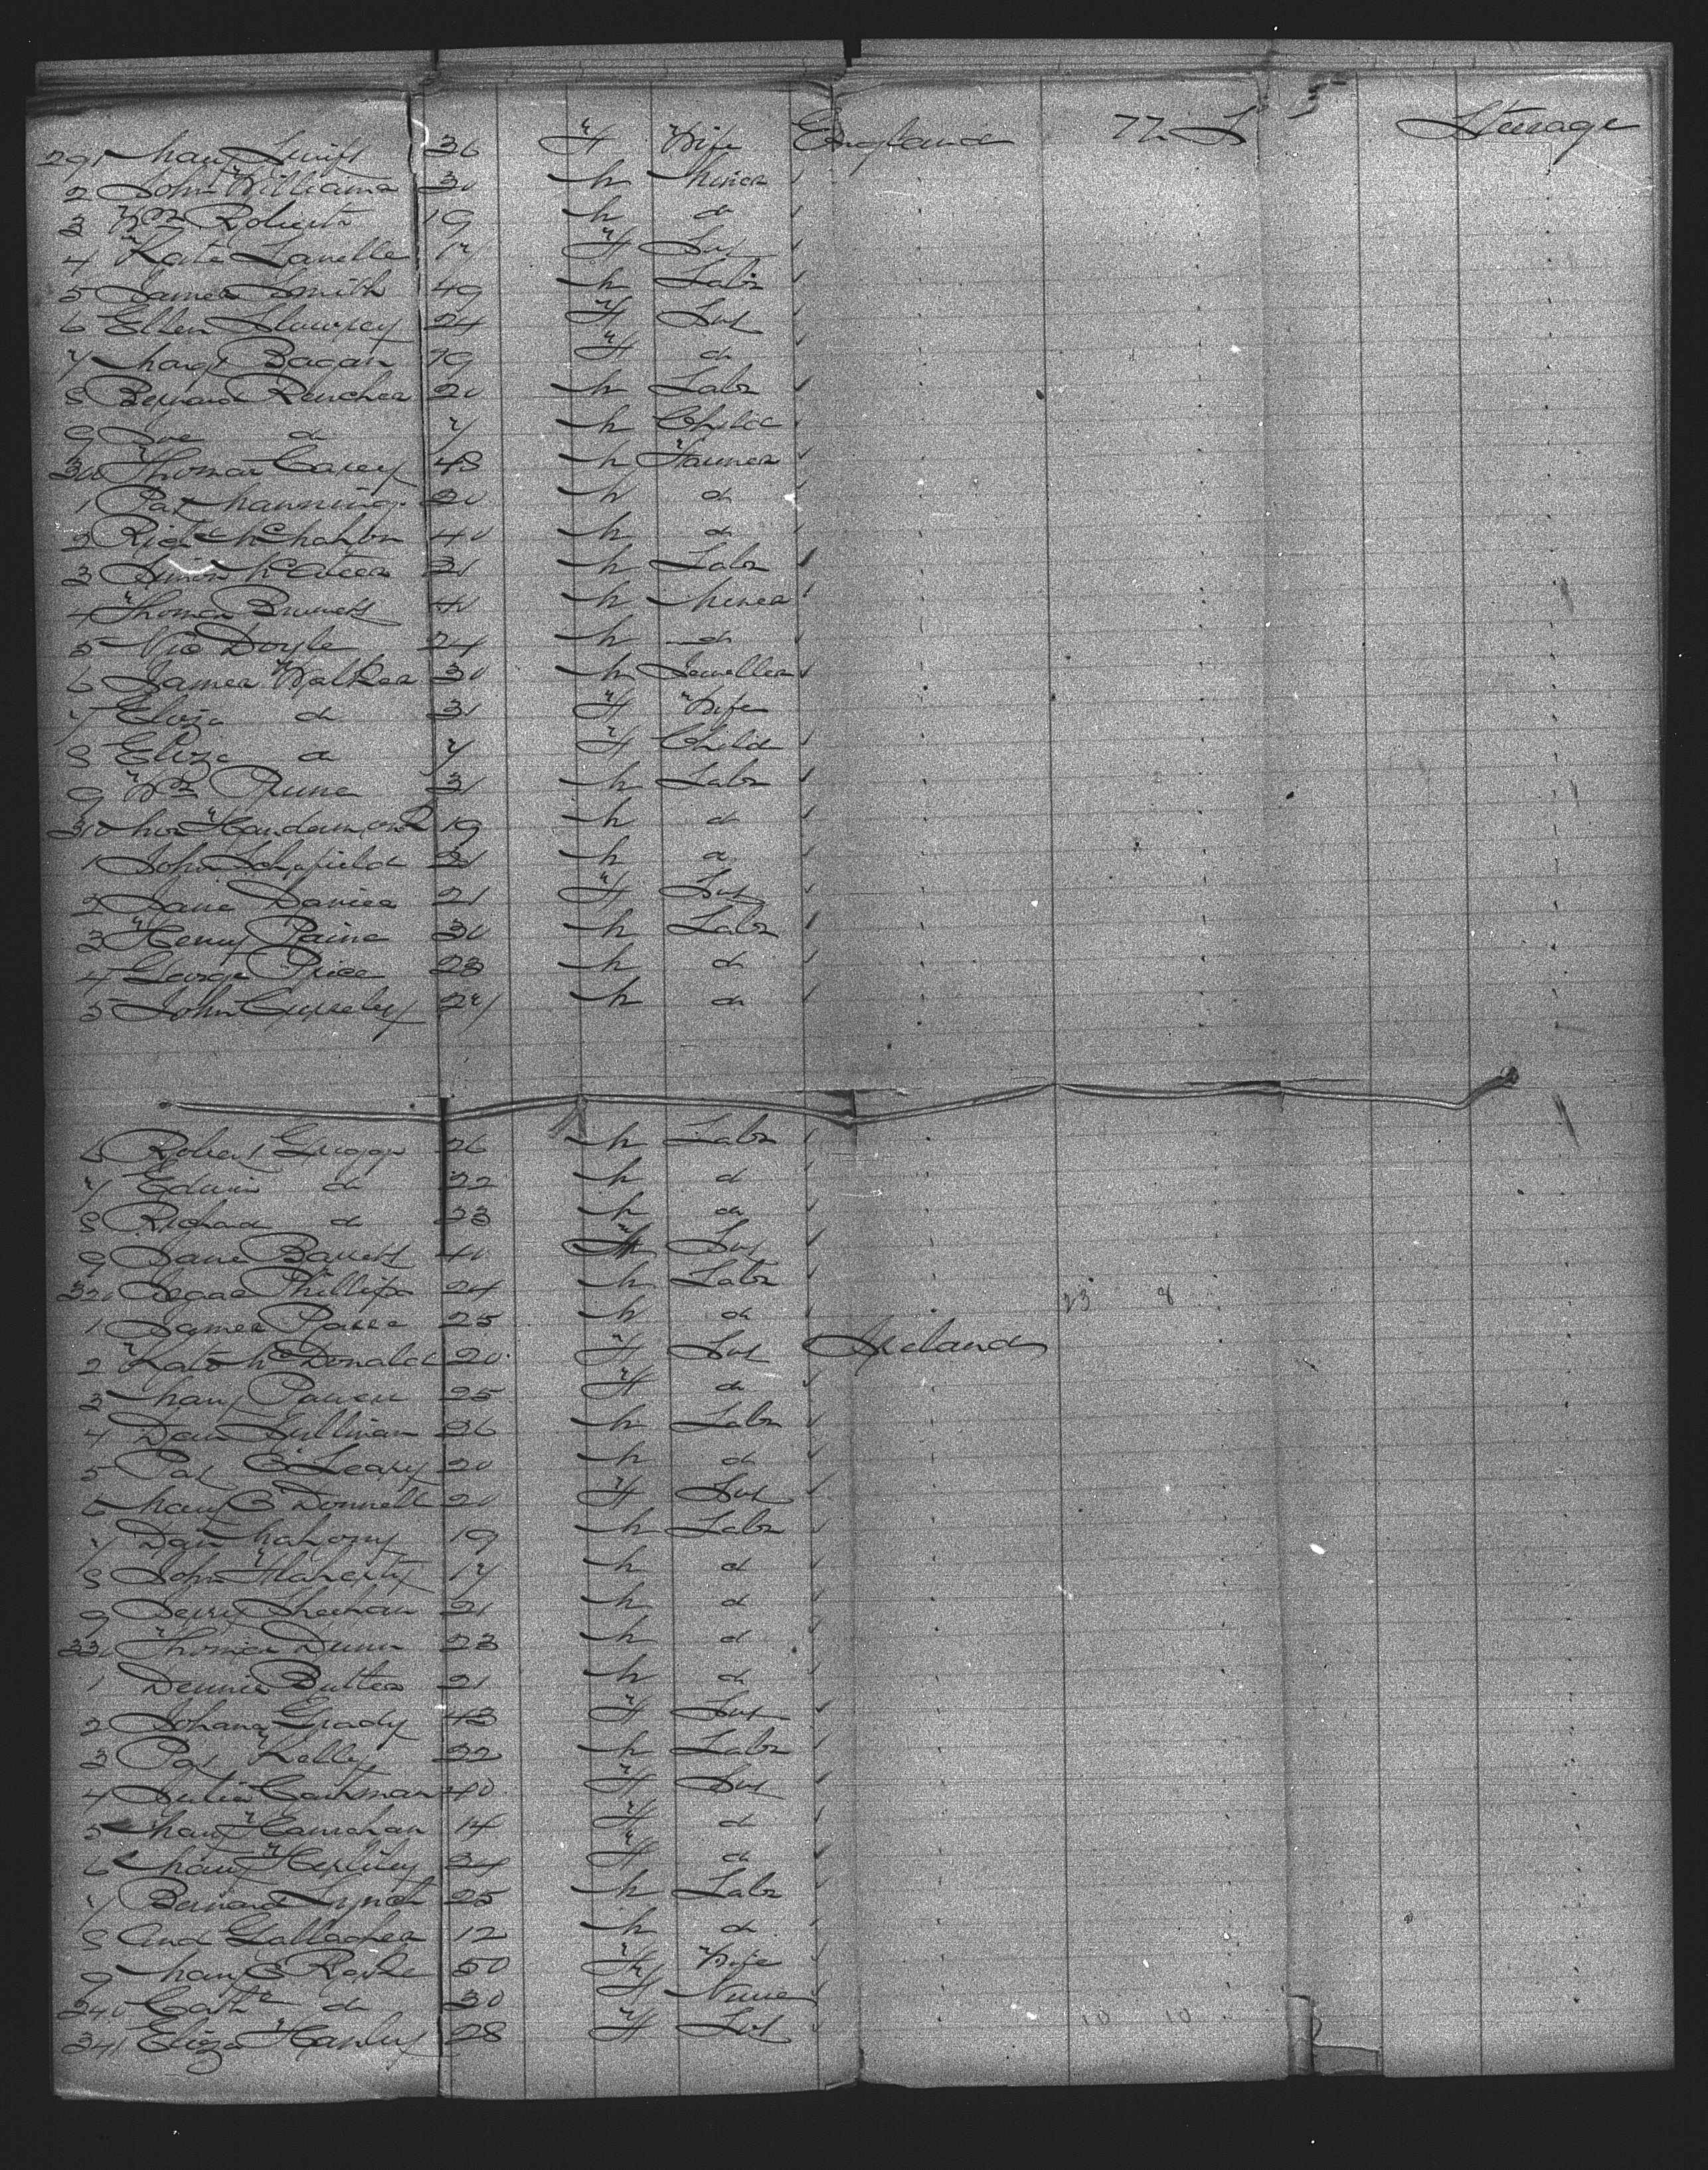 291 Mary Swift 36 F Wife England U.S. Steerage
2 John Williams 30 M Miner
3 Wm Roberts 19 M do
4 Kate Lavelle 17 F Svt
5 James Smith 49 M Labr
6 Ellen 24 F Svt
7 Margt Bagan 19 F do
8 Bernard 20 M Labr
9 do 7 M Child
300 Thomas Carey 48 M Farmer
1 Pat Manning 20 M do
2 Richd McMahon 40 M do
3 Simon McAteer 31 M Labr
4 Thomas 40 M Miner
5 Nic Doyle 24 M do
6 James Walker 30 M Jeweller
7 Eliza do 31 F Wife
8 Eliza do 7 F Child
9 Wm 31 M Labr
310 19 M do
1 John Schofield 21 M do
2 Jane Davies 21 F Svt
3 Henry Paine 30 M Labr
4 George Price 23 M do
5 John 27 M do
6 Robert Griggs 26 M Labr
7 Edwin do 22 M do
8 Richard do 23 M do
9 Jane Barrett 40 F Svt
320 Phillips 24 M Labr
23 8
1 James 25 M do
2 Kate McDonald 20 F Svt Ireland
3 Mary Power 25 F do
4 Dan Sullivan 26 M Labr
5 Pat O'Leary 20 M do
6 Mary O'Donnell 20 F Svt
7 Dan Mahony 19 M Labr
8 John Flaherty 17 M do
9 Jerry Sheehan 21 M do
330 Thomas Dunn 23 M do
1 Dennis Butler 21 M do
2 Johana Grady 43 F Svt
3 Pat Kelly 22 M Labr
4 Julia 40 F Svt
5 Mary Hanrahan 14 F do
6 Mary Herlihy 24 F do
7 Bernard Lynch 25 M Labr
8 And Gallagher 12 M do
9 Mary 50 F Wife
340 Cathe do 30 F Nurse
341 Eliza Hanley 28 F Svt
10 10